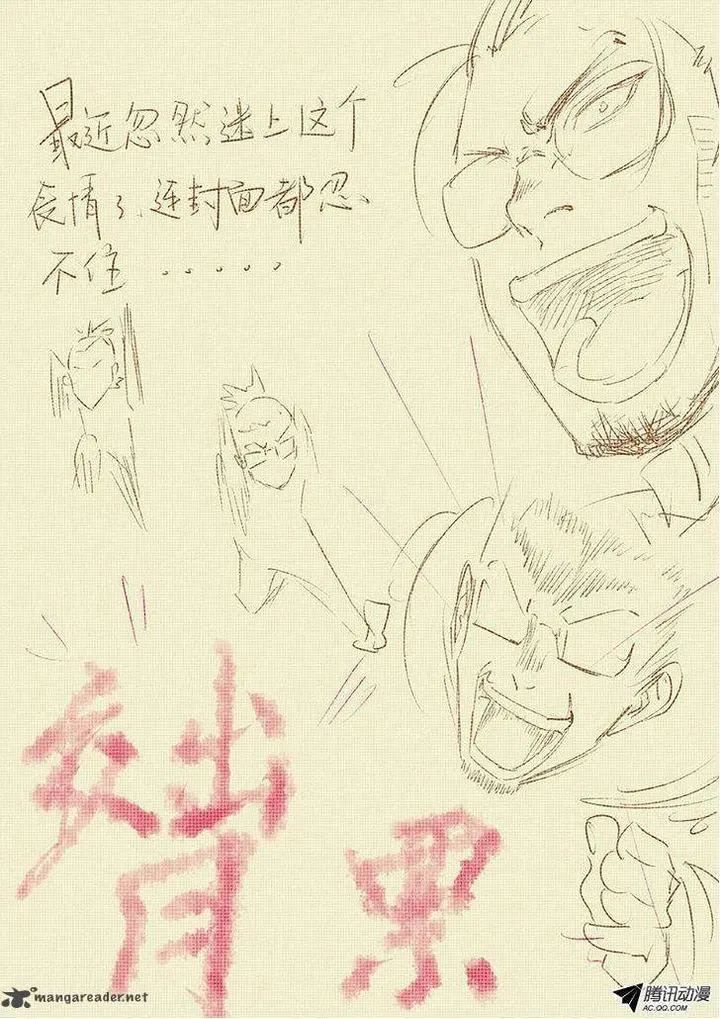 最近忽然迷上这个
表情了、连封面都忍
不住......
mangareader.net
腾讯动漫
AC.QQ.COM